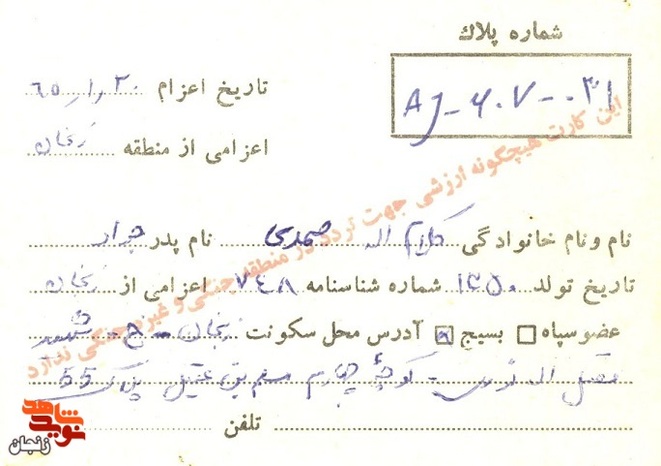 شماره پلاك
AJ-607-031
تاریخ اعزام ۶۵٫۱٫۲۰
اعزامی از منطقه زنجان
این کارت هیچگونه ارزشی جهت تردد در منطقه جنگی و غیره جنگی ندارد
نام ونام خانوادگی کلام اله صمدی نام پدر
تاریخ تولد ۱۳۵۰ شماره شناسنامه ۷۴۸ اعزامی از زنجان
عضوسپاه بسیج آدرس محل سکونت زنجان - خ - شهید
فضل اله - کوچه چهارم مسلم بن عقیل پلاک 55
تلفن
شاهد
نوید
زنجان